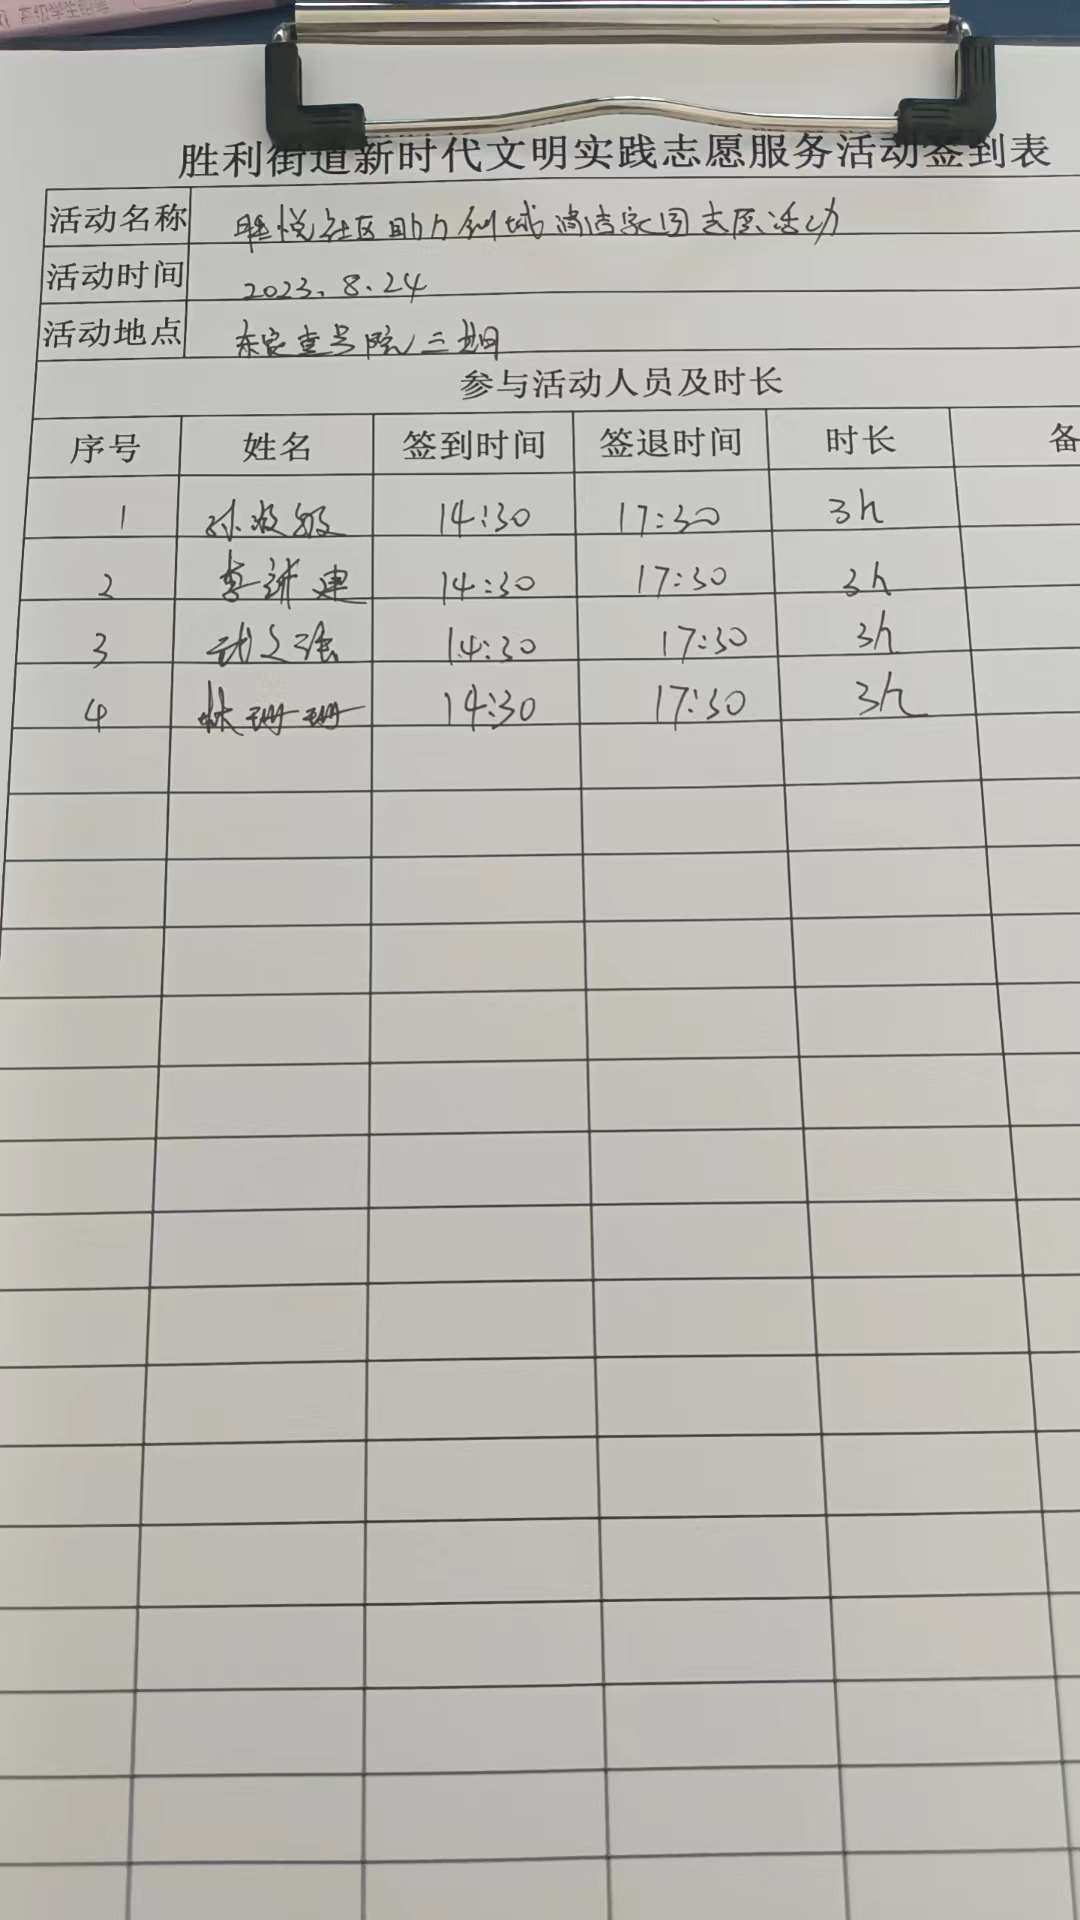 高级学生铅笔
胜利街道新时代文明实践志愿服务活动签到表
活动名称 胜悦社区助力创城清洁家园志愿活动
活动时间 2023.8.24
活动地点 东宸壹号院三期
参与活动人员及时长
序号 姓名 签到时间 签退时间 时长 备
1 14:30 17:30 3h
2 李 建 14:30 17:30 3h
3 14:30 17:30 3h
4 林珊珊 14:30 17:30 3h